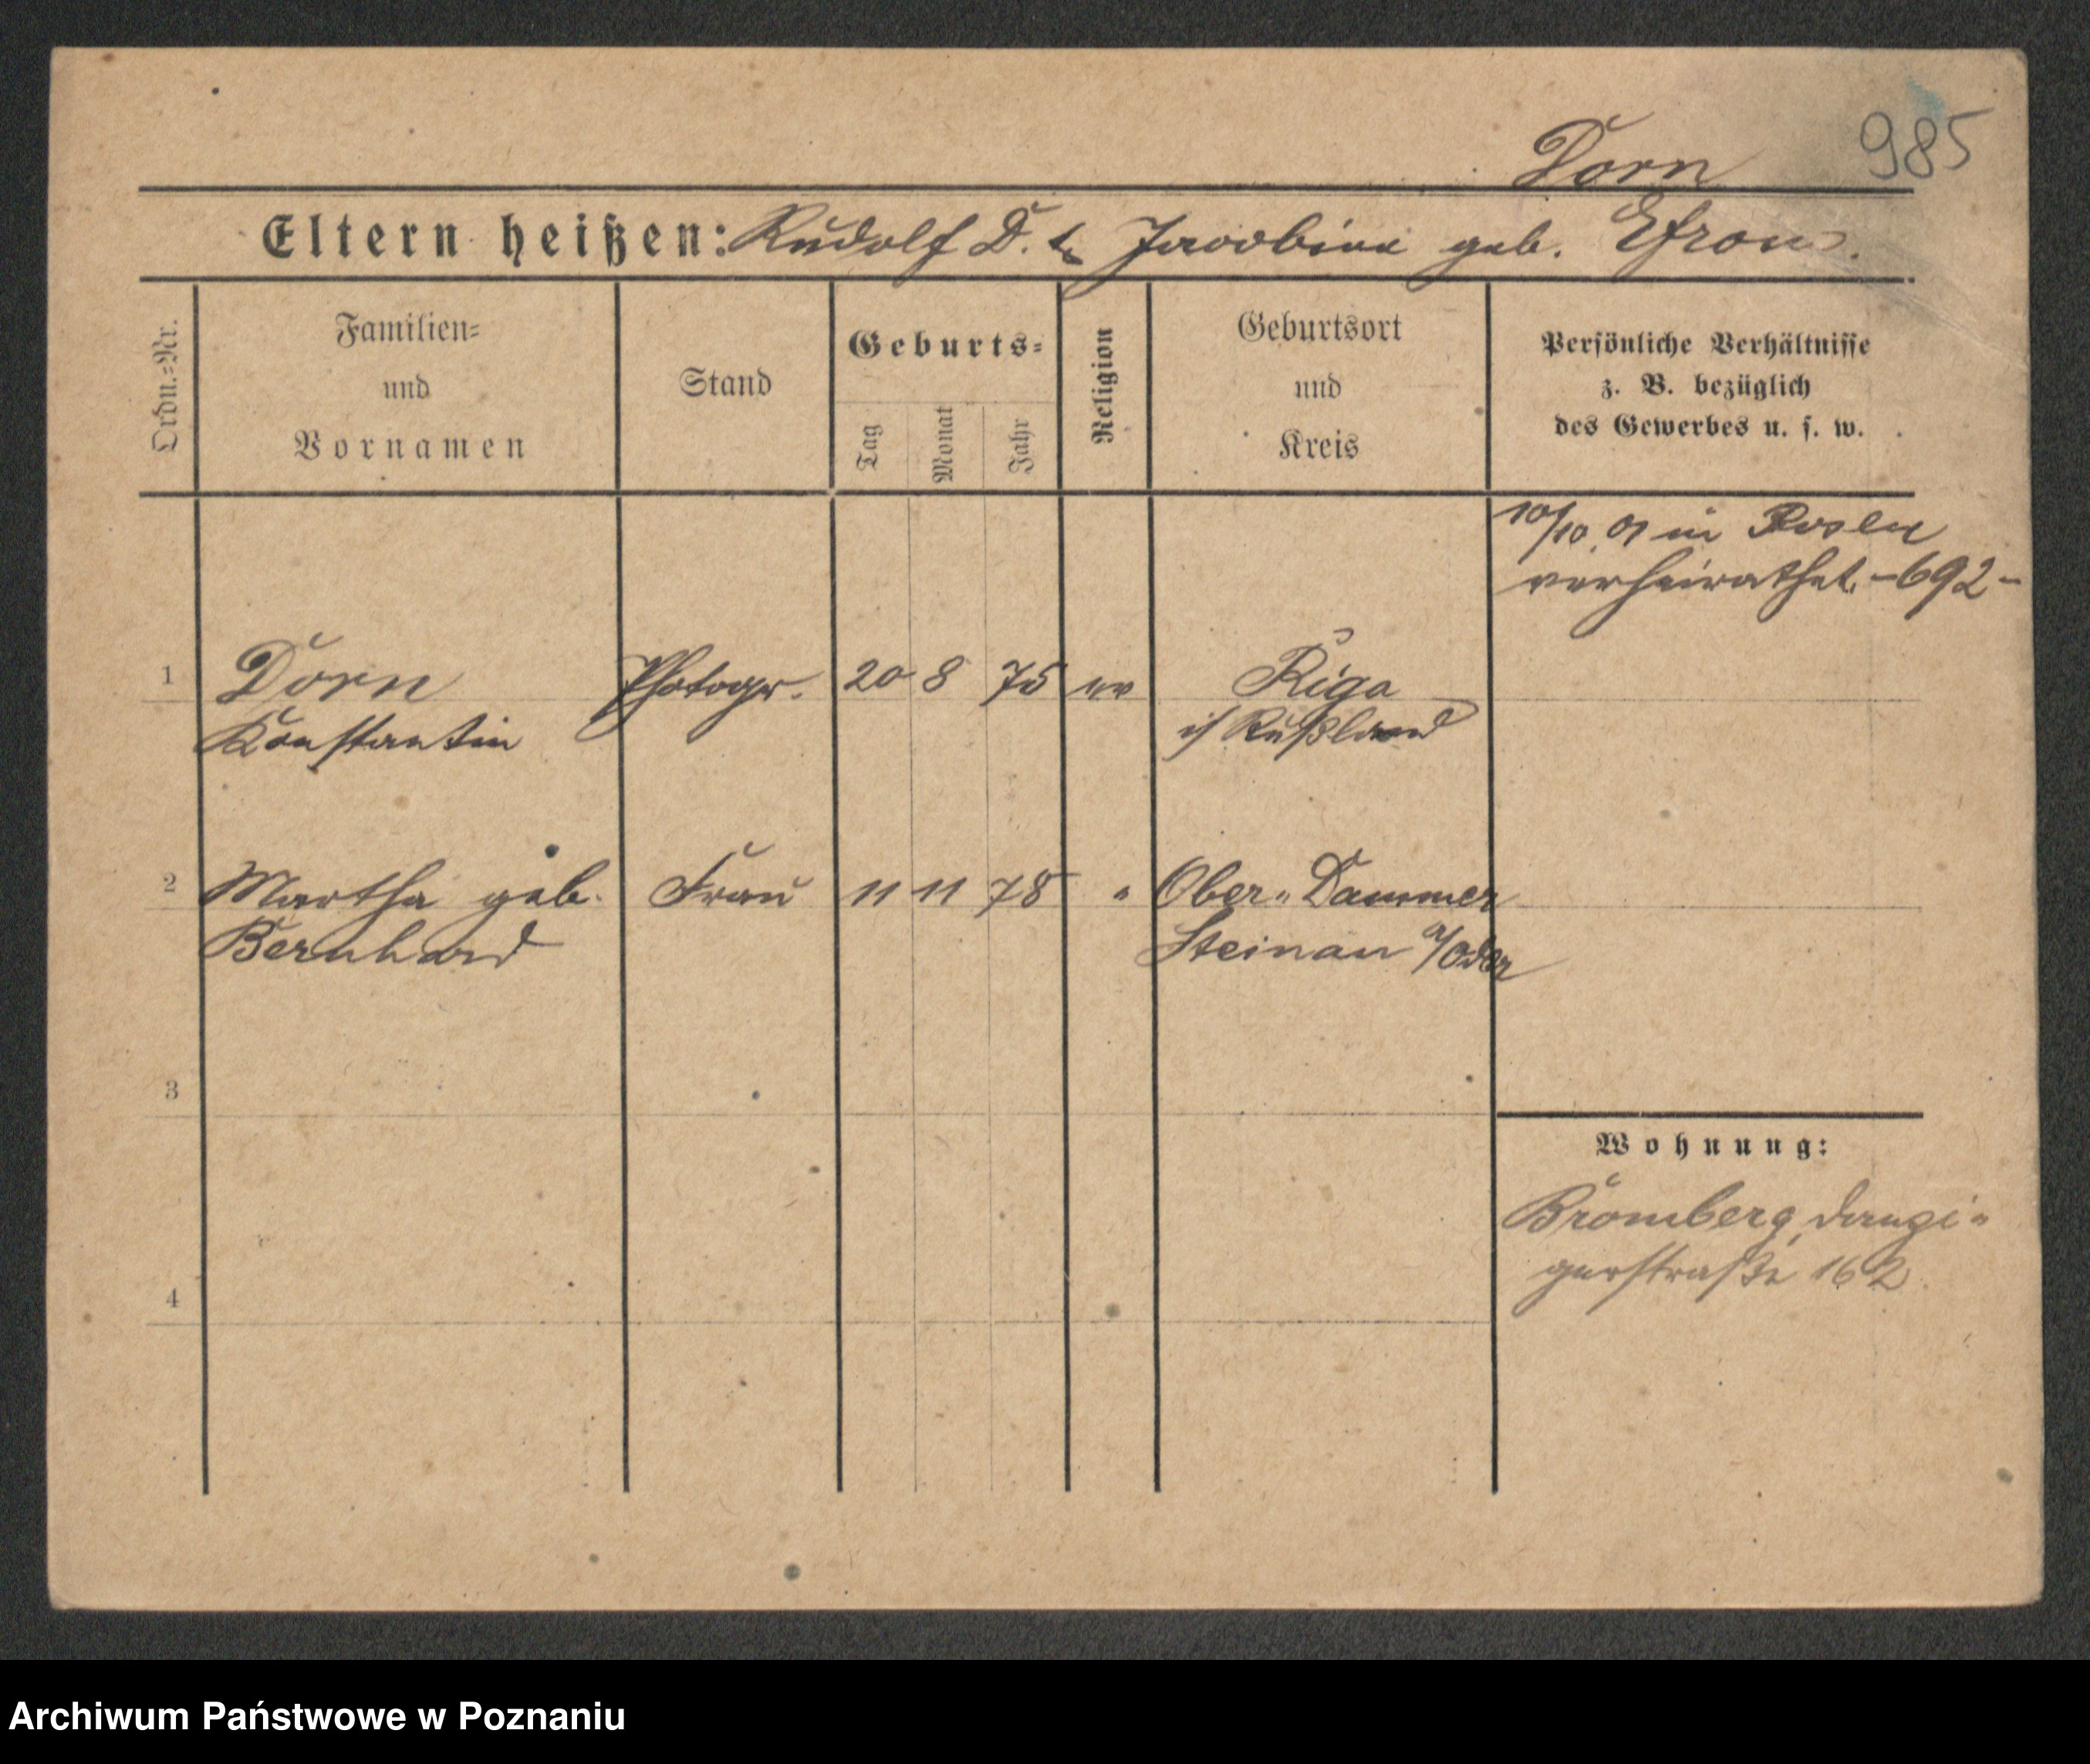 Dorn 985
Eltern heißen: Rudolf D. & Jacobine geb. Efron.
Ordn.=Nr.
Familien=
und
Vornamen
Stand
Geburts=
Tag
Monat
Jahr
Religion
Geburtsort
und
Kreis
Persönliche Verhältnisse
z. B. bezüglich
des Gewerbes u. s. w.
10/10.01 in Posen
verheirathet. -692-
1 Dorn Photogr. 20 8 75 ev Riga
Konstantin i/ Rußland
2 Martha geb. Frau 11 11 78 " Ober-Dammer
Bernhard Steinau a/Oder
3
Wohnung:
Bromberg, Danzi-
gerstraße 162
4
Archiwum Państwowe w Poznaniu